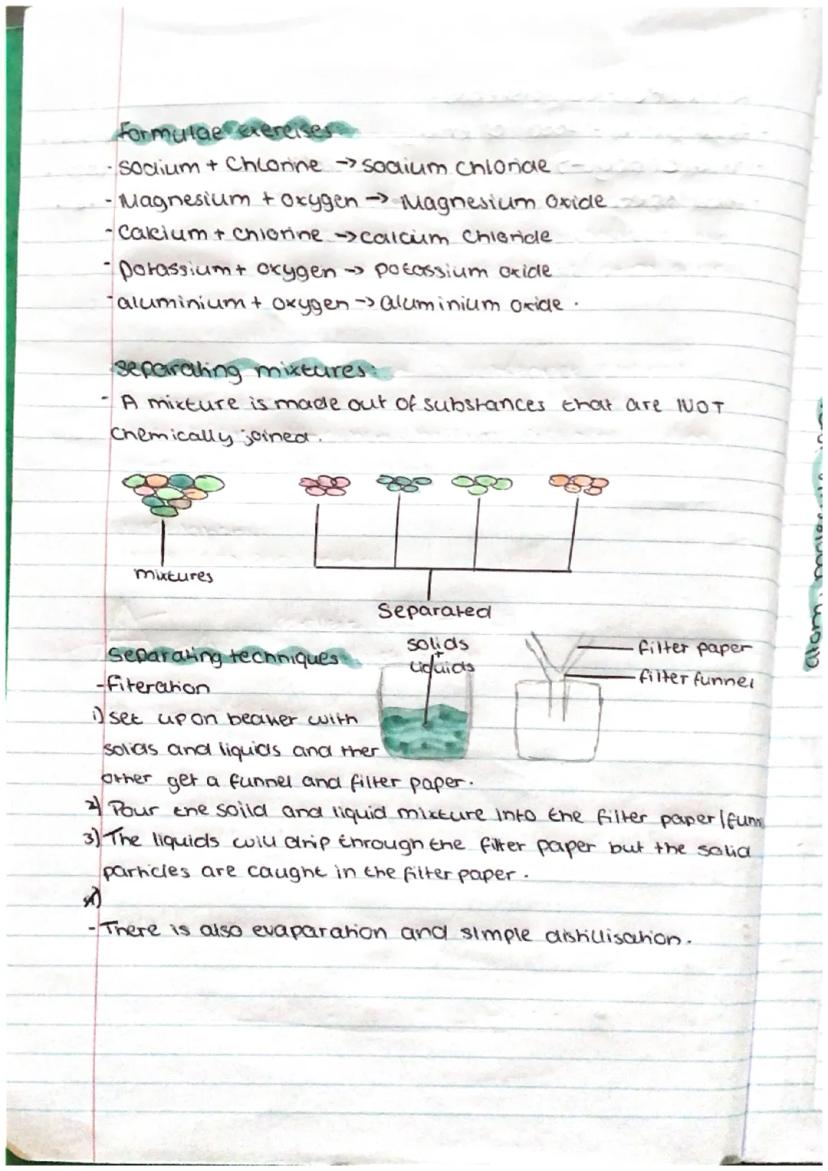 Formulae exercises
- Sodium + Chlorine → sodium chloride
- Magnesium + oxygen → Magnesium oxide
- Calcium + chlorine → calcium chloride
- potassium + oxygen → potassium oxide
- aluminium + oxygen → aluminium oxide.
separating mixtures:
- A mixture is made out of substances that are NOT
chemically joined.
mixtures
Separated
Separating techniques
solids
+
liquids
filter paper
filter funnel
- Fiteration
1) set up on beaker with
solids and liquids and ther
other get a funnel and filter paper.
2) Pour the soild and liquid mixture into the filter paper/funn
3) The liquids will drip through the filter paper but the solid
particles are caught in the filter paper.
4)
- There is also evaparation and simple distillisation.